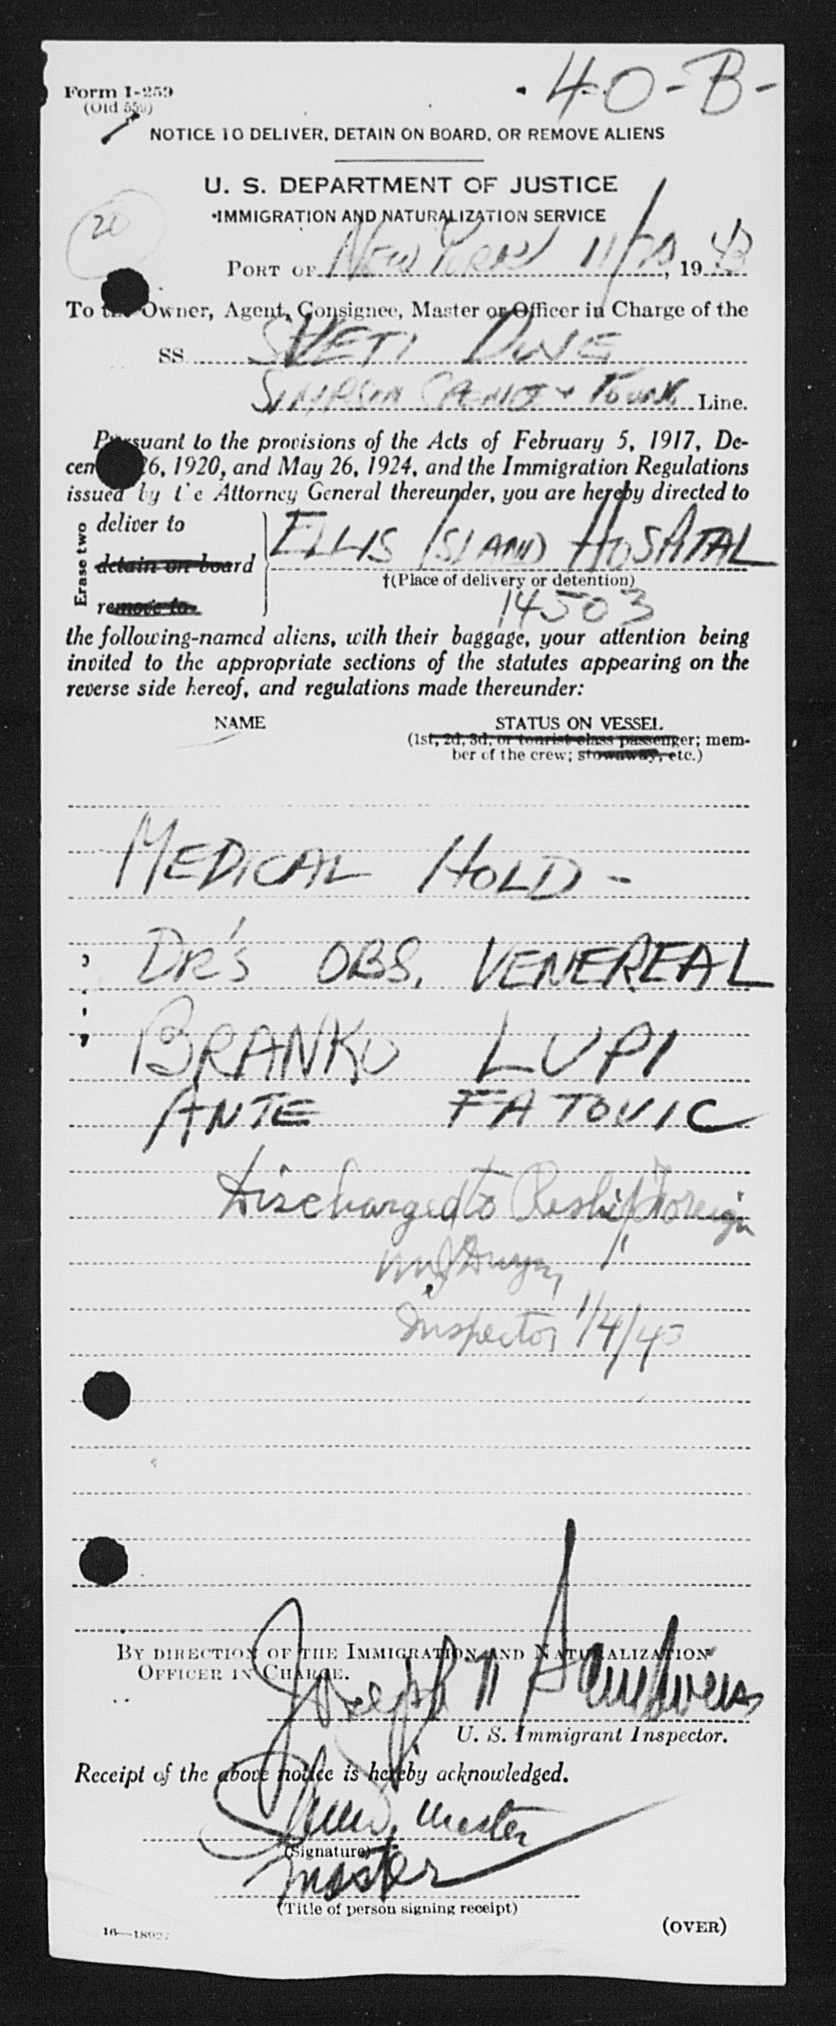 40-B-
Form I-259
(Old 559)
NOTICE TO DELIVER, DETAIN ON BOARD, OR REMOVE ALIENS
U. S. DEPARTMENT OF JUSTICE
IMMIGRATION AND NATURALIZATION SERVICE
20
PORT OF New York 11/20, 1943
To the Owner, Agent, Consignee, Master or Officer in Charge of the
SS SVETI DUJE
SIMPSON SPENCE + YOUNG Line.
Pursuant to the provisions of the Acts of February 5, 1917, De-
cember 26, 1920, and May 26, 1924, and the Immigration Regulations
issued by the Attorney General thereunder, you are hereby directed to
Erase two
deliver to
detain on board
remove to
ELLIS ISLAND HOSPITAL
†(Place of delivery or detention)
14503
the following-named aliens, with their baggage, your attention being
invited to the appropriate sections of the statutes appearing on the
reverse side hereof, and regulations made thereunder:
NAME STATUS ON VESSEL
(1st, 2d, 3d, or tourist class passenger; mem-
ber of the crew; stowaway, etc.)
MEDICAL HOLD -
DR'S OBS. VENEREAL
BRANKO LUPI
ANTE FATOVIC
Discharged to Reship Foreign
Inspector 1/4/43
BY DIRECTION OF THE IMMIGRATION AND NATURALIZATION
OFFICER IN CHARGE.
Joseph
U. S. Immigrant Inspector.
Receipt of the above notice is hereby acknowledged.
master
(Signature)
master
(Title of person signing receipt)
(OVER)